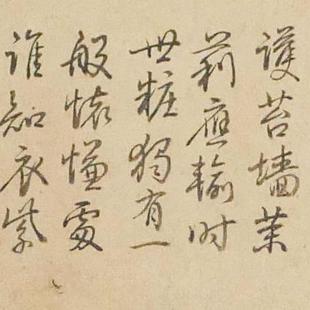 護苔墻茉
莉應輸时
世粧獨有一
般怀慊處
誰知衣紫